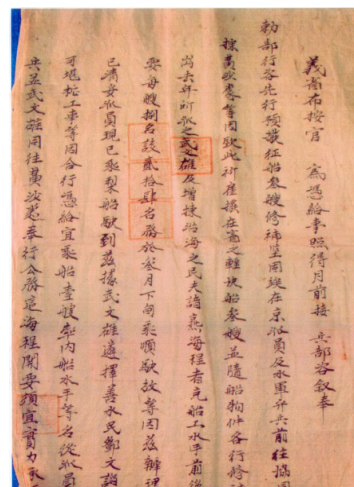 義省布按官 為憑給事照得月前接 兵部咨敘奉
勅部行咨先行預撥征船叁艘修補堅固竢在京派員及水軍弁兵前往協同
黃沙等因欽此所在省之輕快船叁艘並隨船物件各行修補
去年所派之武文雄及增揀沿海之民夫諳熟海程者充船工水手甫
要每艘捌名該貳拾肆名務於叁月下旬乘順駛故等因茲辦理
已清妥派員現已乘船駛到茲據武文雄遴擇善水民鄧文
可堪舵工事等因合行憑給宜乘船壹艘率內船水手等名從派員
共並武文雄同往黃沙處奉行公務這海程關要須宜實力承